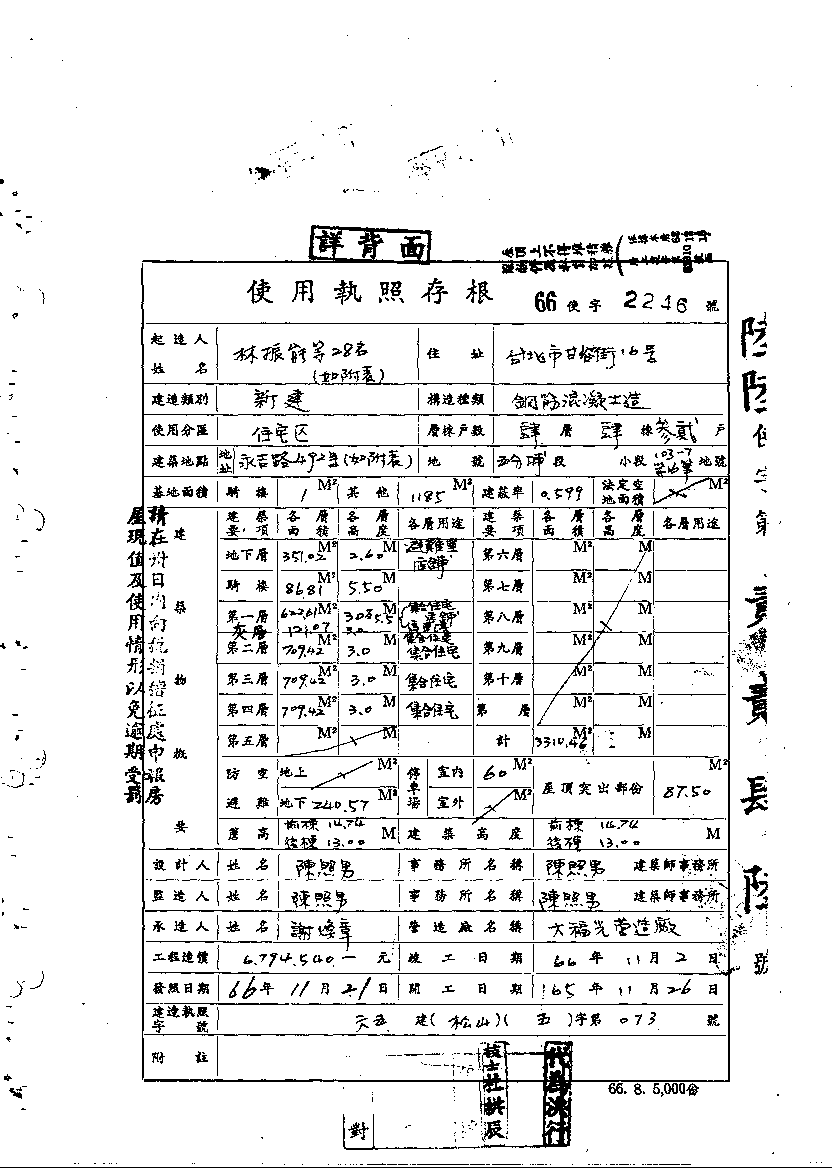 詳背面
使用執照存根 66使字 2246 號
起造人姓名 林振能等28名(如附表) 住址 台北市甘谷街16号
建造類別 新建 構造種類 鋼筋混凝土造
使用分區 住宅区 層棟戶數 肆層 肆棟 參貳戶
建築地點 地址 永吉路492巷(如附表) 地號 五分埔段 小段 103-7 等16筆 地號
基地面積 騎樓 1 M² 其他 1185 M² 建蔽率 0.599 法定空地面積 M²
建築物概要
建築要項 各層面積 各層高度 各層用途 建築要項 各層面積 各層高度 各層用途
地下層 351.02 M² 2.60 M 避難室 店舖 第六層 M² M
騎樓 86.81 M² 5.50 M 第七層 M² M
第一層 622.61 M² 集合住宅 店舖 第八層 M² M
夾層 121.07 3.0
第二層 709.42 M² 3.0 M 集合住宅 第九層 M² M
第三層 709.42 M² 3.0 M 集合住宅 第十層 M² M
第四層 709.42 M² 3.0 M 集合住宅 第 層 M² M
第五層 M² M 計 3310.46 M² M
防空避難 地上 M² 停車場 室內 60 M² 屋頂突出部份 87.50 M²
地下 240.57 室外 M²
簷高 前棟 14.74 後棟 13.00 M 建築高度 前棟 14.74 後棟 13.00 M
設計人 姓名 陳照男 事務所名稱 陳照男 建築師事務所
監造人 姓名 陳照男 事務所名稱 陳照男 建築師事務所
承造人 姓名 謝煥章 營造廠名稱 大福光营造廠
工程造價 6.794.540一元 竣工日期 66年11月2日
發照日期 66年11月21日 開工日期 65年11月26日
建造執照字號 六五 建(松山)(五)字第 073 號
附註
66. 8. 5,000份
請在卅日內向稅捐稽征處申報房
屋現值及使用情形以免逾期受罰
技士杜拱辰
代為決行
對